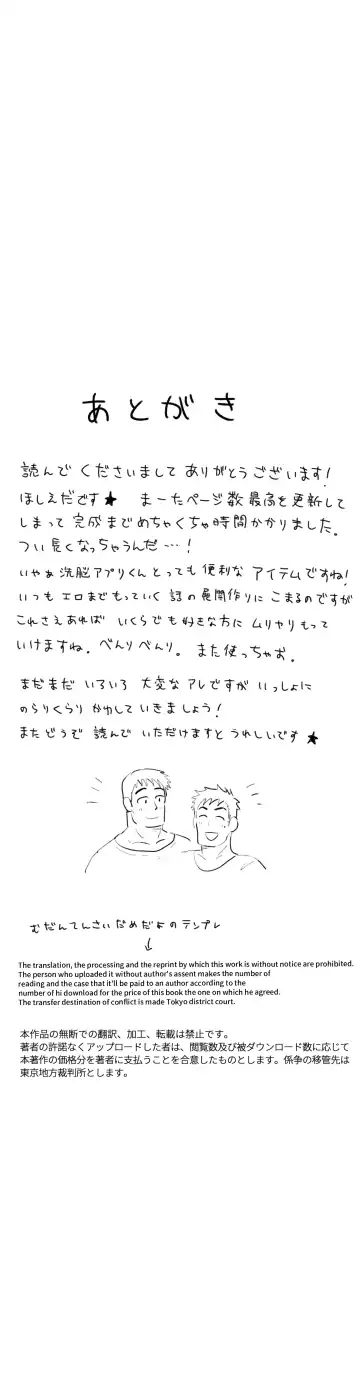 あとがき
読んでくださいまして ありがとうございます!
ほしえだです★ まーたページ数最高を更新して
しまって完成までめちゃくちゃ時間かかりました。
つい長くなっちゃうんだ…!
いやぁ洗脳アプリくんとっても便利な アイテムですね!
いつも エロまでもっていく 話の展開作りに こまるのですが
これさえあれば いくらでも好きな方に ムリヤリもって
いけますね. べんりべんり。 また使っちゃお。
まだまだ いろいろ 大変なアレですが いっしょに
のらりくらり かわしていきましょう!
またどうぞ 読んで いただけますと うれしいです★
むだんてんさいだめだよのテンプレ
↓
The translation, the processing and the reprint by which this work is without notice are prohibited.
The person who uploaded it without author's assent makes the number of
reading and the case that it'll be paid to an author according to the
number of hi download for the price of this book the one on which he agreed.
The transfer destination of conflict is made Tokyo district court.
本作品の無断での翻訳、加工、転載は禁止です。
著者の許諾なくアップロードした者は、閲覧数及び被ダウンロード数に応じて
本著作の価格分を著者に支払うことを合意したものとします。係争の移管先は
東京地方裁判所とします。